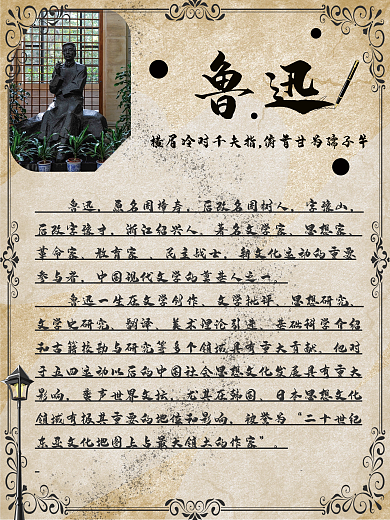 鲁迅
横眉冷对千夫指,俯首甘为孺子牛
鲁迅，原名周樟寿，后改名周树人，字豫山，
后改字豫才，浙江绍兴人，著名文学家、思想家、
革命家、教育家、民主战士，新文化运动的重要
参与者，中国现代文学的奠基人之一
鲁迅一生在文学创作、文学批评、思想研究、
文学史研究、翻译、美术理论引进、基础科学介绍
和古籍校勘与研究等多个领域具有重大贡献。他对
于五四运动以后的中国社会思想文化发展具有重大
影响，蜚声世界文坛，尤其在韩国、日本思想文化
领域有极其重要的地位和影响，被誉为“二十世纪
东亚文化地图上占最大领土的作家”。